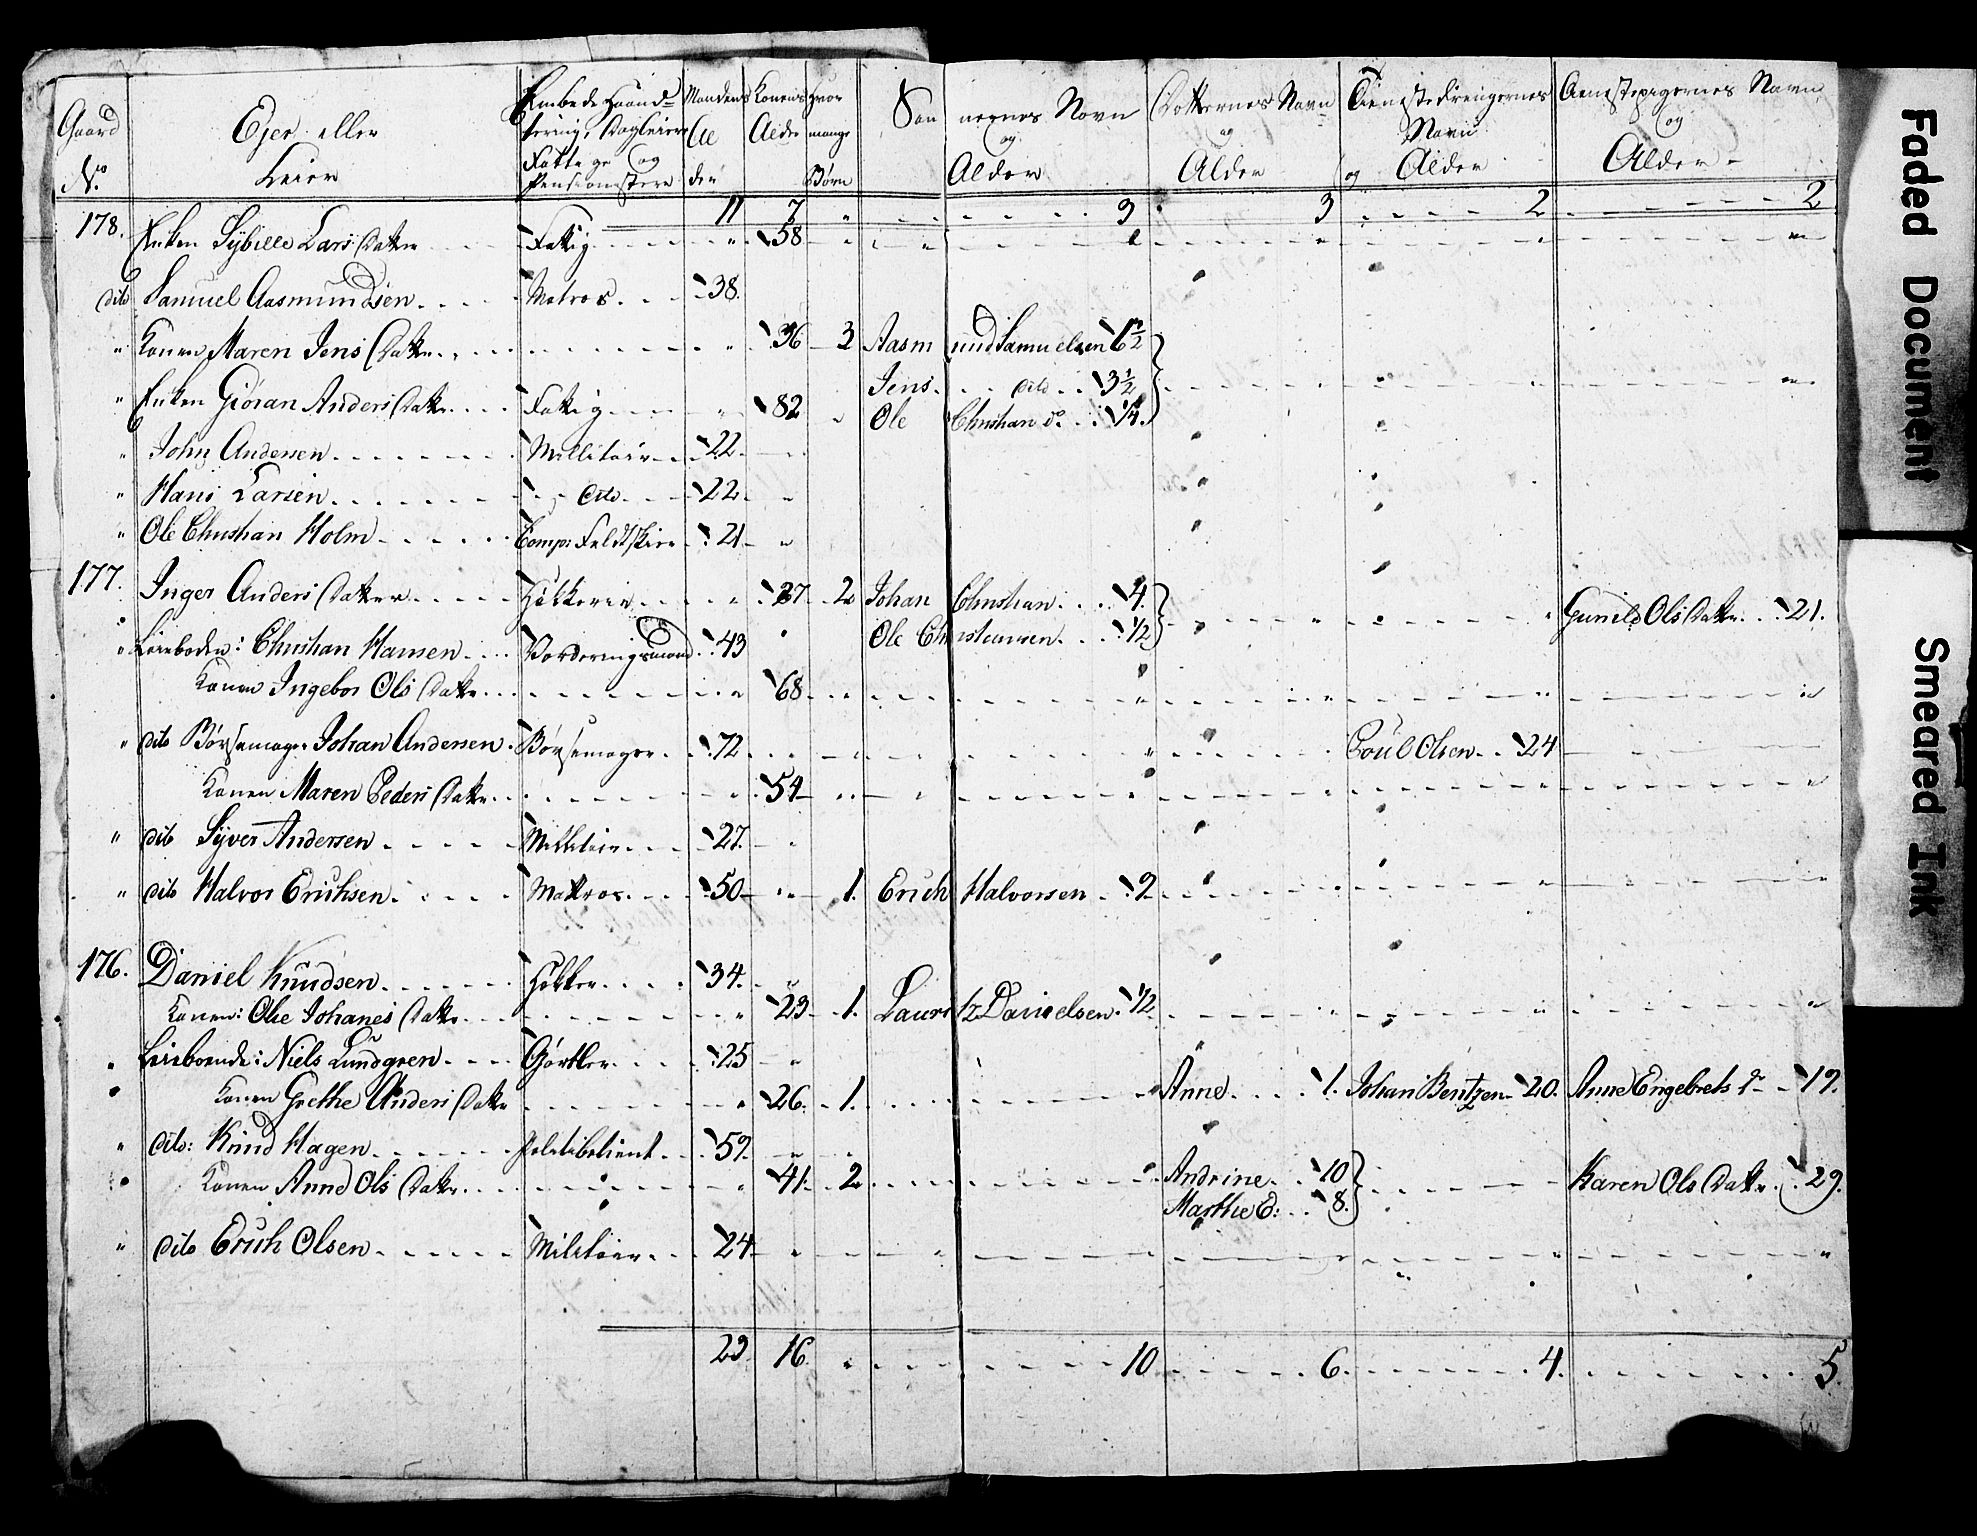 Gaard No. Ejer eller Leier Embede Haandtering, Dagleiere Fattige og Pensionister Mandens Alder Konens Alder Hvor mange Børn Sønnernes Navn og Alder Dotternes Navn og Alder Tienistedrengernes Navn og Alder Tienistepigernes Navn og Alder
11 7 " 3 3 2 2
178. Enken Sybille Lars Datter Fattig " 58
dito Samuel Aasmundsen Matros 38.
" Konen Maren Jens Datter 36 3 Aasmund Samuelsen 6 1/2
Jens dito 3 1/2
" Enken Giøran Anders Datter Fattig " 82 " Ole Christian do. 1/4.
" John Andersen Millitair 22
" Hans Larsen dito 22
" Ole Christian Holm Comp: Feldtskier 21 "
177. Inger Anders Datter Høkkerie " 37 2 Johan Christian 4. Gunild Ols Datter 21.
" Leieboden: Christian Hansen Vorderingsmand 43 " Ole Christiansen 1/2
Konen Ingebor Ols Datter " 68
" dito Børsemager Johan Andersen Børsemager 72 Poul Olsen 24
Konen Maren Peders Datter 54
" dito Syver Andersen Millitair 27. "
" dito Halvor Erichsen Mattros 50 " 1. Erich Halvorsen 9
176. Daniel Knudsen Høkker 34.
Konen: Olie Johanes Datter " 23 1. Lauritz Danielsen 1/2
Leieboende: Niels Lundgren Gørtler 25 "
Konen Grethe Anders Datter " 26. 1. " Anne 1. Johan Bentzen 20. Anne Engebrets dr 19.
" dito: Knud Hagen Politibetient 59.
Konen Anne Ols Datter " 41 2 Andrine 10 Karen Ols Datter 29.
Marthe E: 8.
" dito Erich Olsen Militair 24 "
23 16 " 10 6. 4. 5.
Faded Document
Smeared Ink